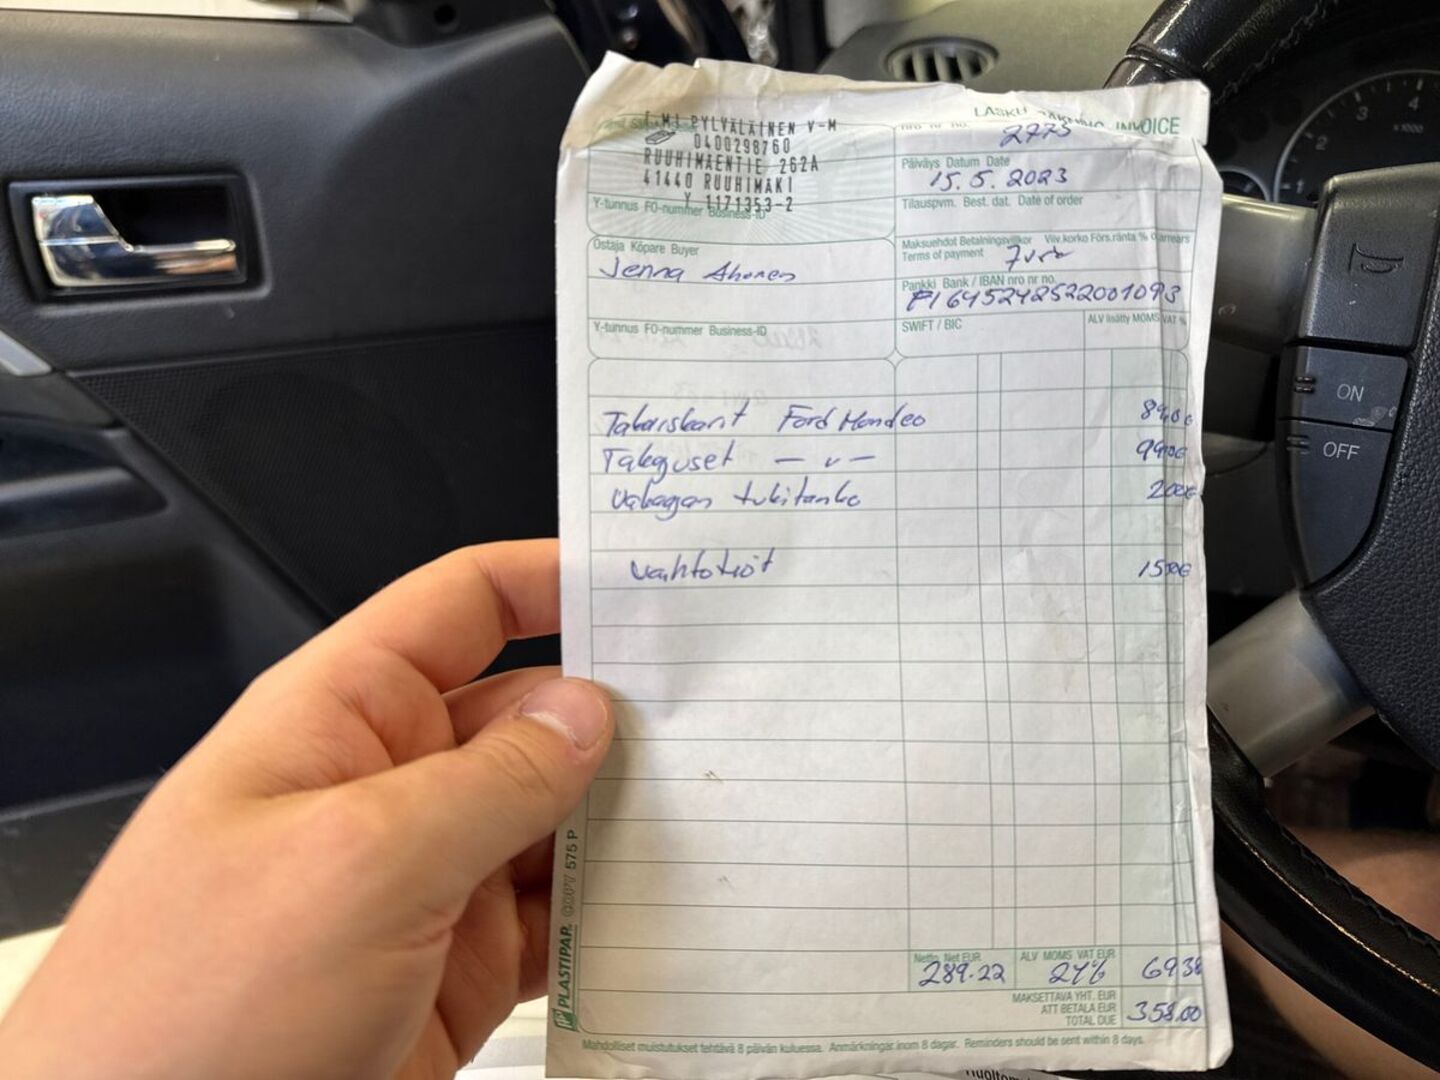 LASKU RÄKNING INVOICE
T:MI PYLVÄLÄINEN V-M
0400298760
RUUHIMÄENTIE 262A
41440 RUUHIMÄKI
Y 1171353-2
Y-tunnus FO-nummer Business-ID
nro nr no.
2775
Päiväys Datum Date
15.5.2023
Tilauspvm. Best. dat. Date of order
Ostaja Köpare Buyer
Jenna Ahonen
Maksuehdot Betalningsvillkor Viiv.korko Förs.ränta % of arrears
Terms of payment
7 vrk
Pankki Bank / IBAN nro nr no.
FI645242522001093
Y-tunnus FO-nummer Business-ID
SWIFT / BIC
ALV lisätty MOMS VAT %
Takaiskarit Ford Mondeo 89,00
Takajuset — v — 99,00€
Vakaajan tukitanko 20,00€
Vaihtotyöt 150€
Netto Net EUR
289.22
ALV MOMS VAT EUR
24%
69,38
MAKSETTAVA YHT. EUR
ATT BETALA EUR
TOTAL DUE
358.00
Mahdolliset muistutukset tehtävä 8 päivän kuluessa. Anmärkningar inom 8 dagar. Reminders should be sent within 8 days.
PLASTIPAR COPY 575 P
ON
OFF
1
2
3
4
x1000